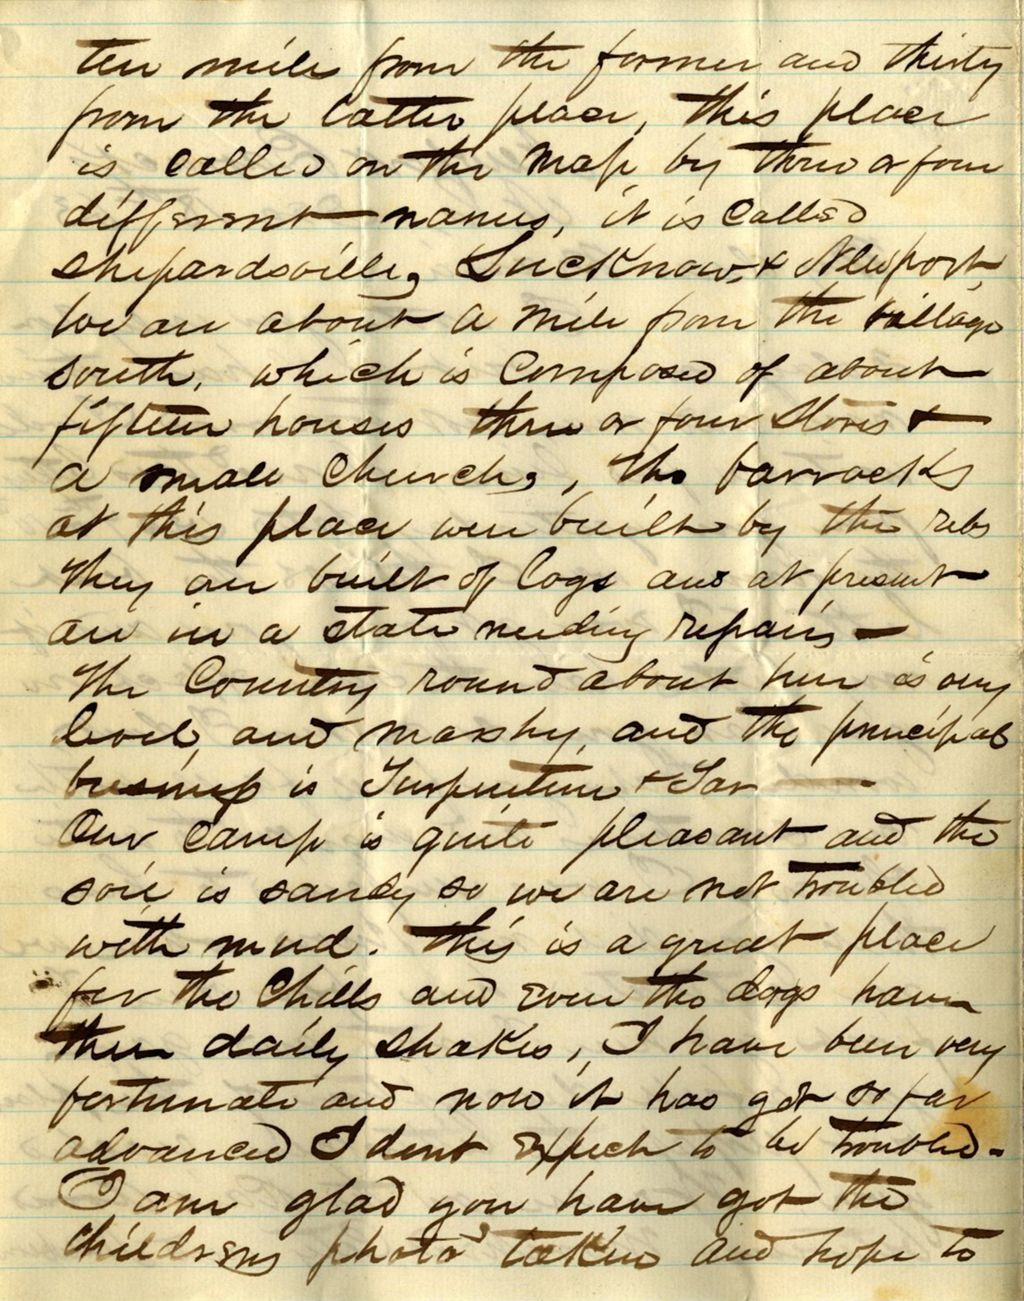 ten mile from the former and thirty
from the latter place, this place
is called on the Map by three or four
different names, it is called
Shepardsville, Lucknow, & Newport
We are about a mile from the village
south, which is Composed of about
fifteen houses three or four Stores &
a small Church, the barracks
at this place were built by the rebs
they are built of logs and at present
are in a state needing repairs —
The Country round about here is very
level, and marshy, and the principal
business is Turpentine & Tar —
Our Camp is quite pleasant and the
soil is sandy so we are not troubled
with mud. this is a great place
for the Chills and even the dogs have
their daily shakes, I have been very
fortunate and now it has got so far
advanced I dont expect to be troubled -
I am glad you have got the
childrens photo' taken and hope to